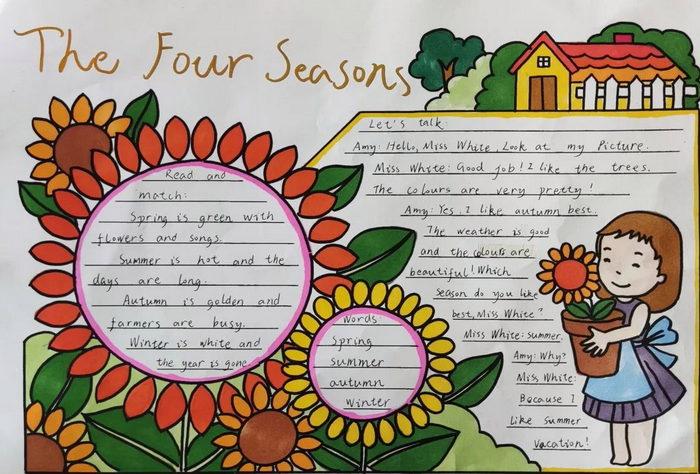 The Four Seasons
Read and
match:
Spring is green with
flowers and songs.
Summer is hot and the
days are long.
Autumn is golden and
farmers are busy.
Winter is white and
the year is gone.
Words:
Spring
summer
autumn
winter
Let's talk.
Amy: Hello, Miss White, Look at my Picture.
Miss White: Good job! I like the trees.
The colours are very pretty!
Amy: Yes. I like autumn best.
The weather is good
and the colours are
beautiful! Which
season do you like
best, Miss White?
Miss White: summer.
Amy: Why?
Miss White:
Because I
like summer
vacation!